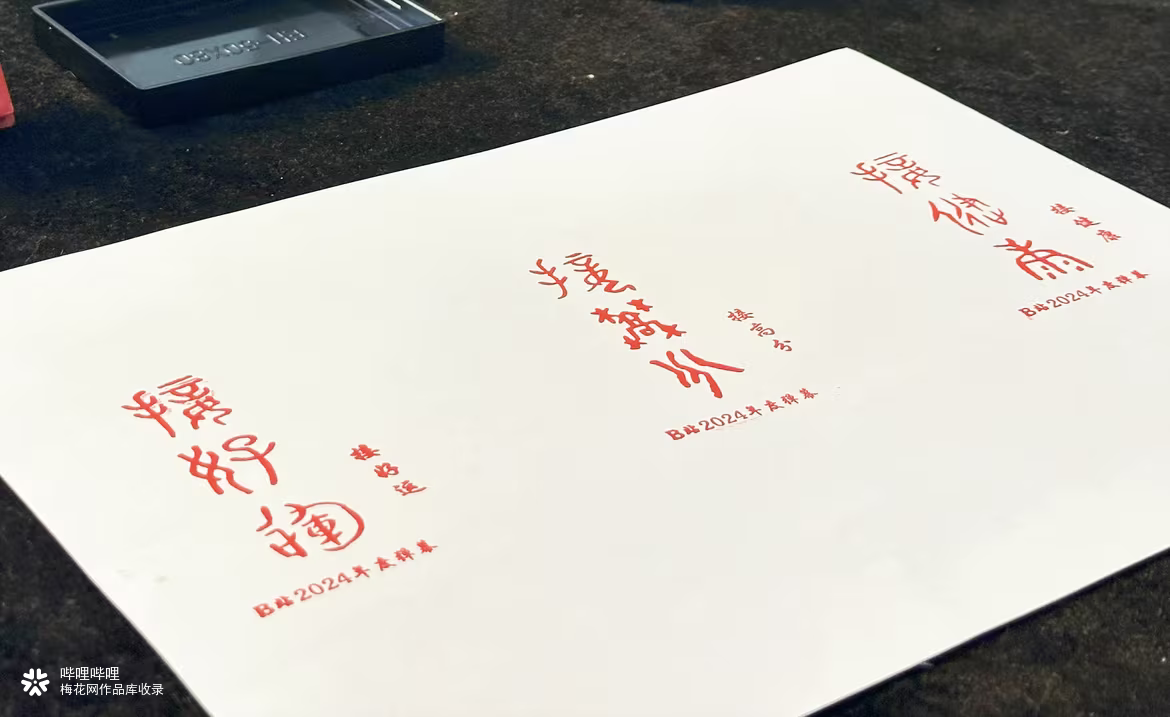 接好运
接好运
B站2024年度弹幕
接高分
接高分
B站2024年度弹幕
接健康
接健康
B站2024年度弹幕
哔哩哔哩
梅花网作品库收录